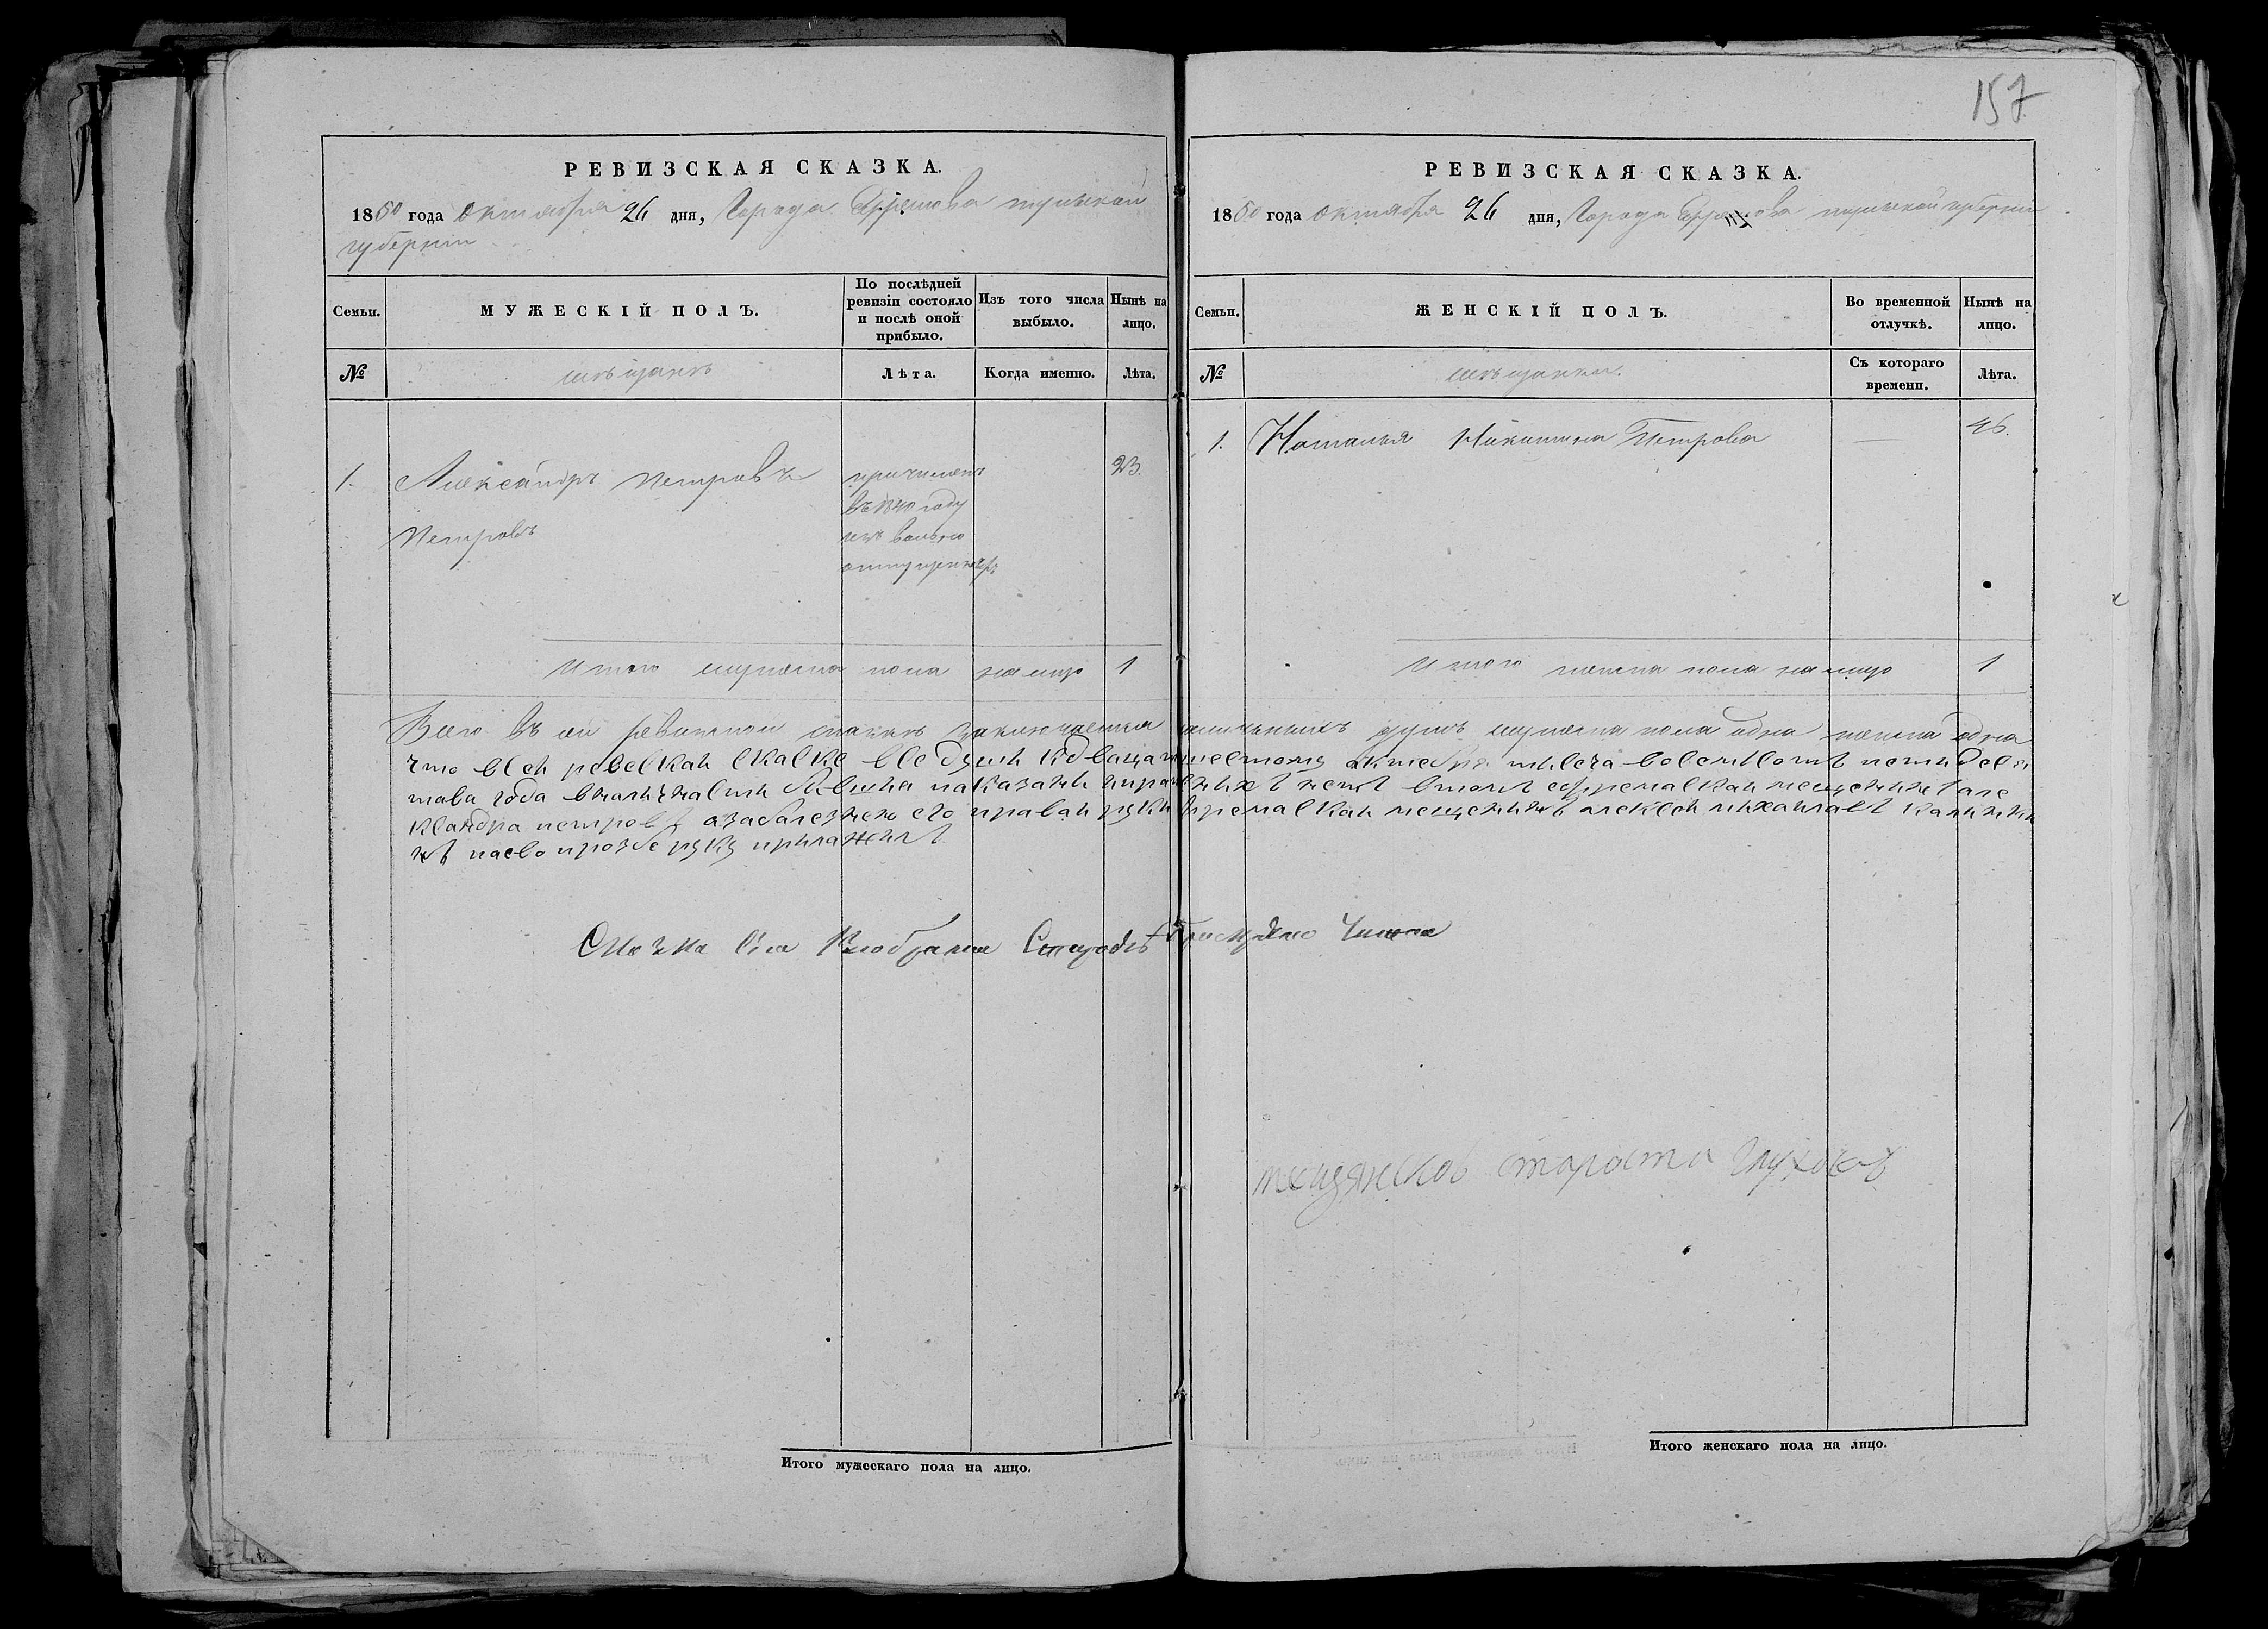 157
РЕВИЗСКАЯ СКАЗКА.
1850 года октября 26 дня, Города Ефремова тульской
губернии
Семьи.
МУЖЕСКІЙ ПОЛЪ.
По послѣдней ревизіи состояло и послѣ оной прибыло.
Изъ того числа выбыло.
Нынѣ на лицо.
№
мѣщанъ
Лѣта.
Когда именно.
Лѣта.
1. Александръ Петровъ 23.
Петровъ
причисленъ
въ 1840 году
изъ вольно
отпущенныхъ
Итого мужеска пола на лицо 1
РЕВИЗСКАЯ СКАЗКА.
1850 года октября 26 дня, Города Ефремова тульской губернии
Семьи.
ЖЕНСКІЙ ПОЛЪ.
Во временной отлучкѣ.
Нынѣ на лицо.
№
мѣщанки.
Съ котораго времени.
Лѣта.
1. Наталья Никитина Петрова — 46.
Итого женска пола на лицо 1
Всего въ сей ревизской сказкѣ заключается наличныхъ душъ мужеска пола одна женска одна
что всей ревескаи скаске все души кдвацати шестому актебря тысеча восемсотъ пети десе
това года вналичнасти
ксандра петров азаболезнею его правай руки ефремавскай мещенинъ алексеи михаилавъ
нъ паево прозбе руку прилажилъ
Сказка
мещянсков староста Глухов
Итого мужескаго пола на лицо.
Итого женскаго пола на лицо.